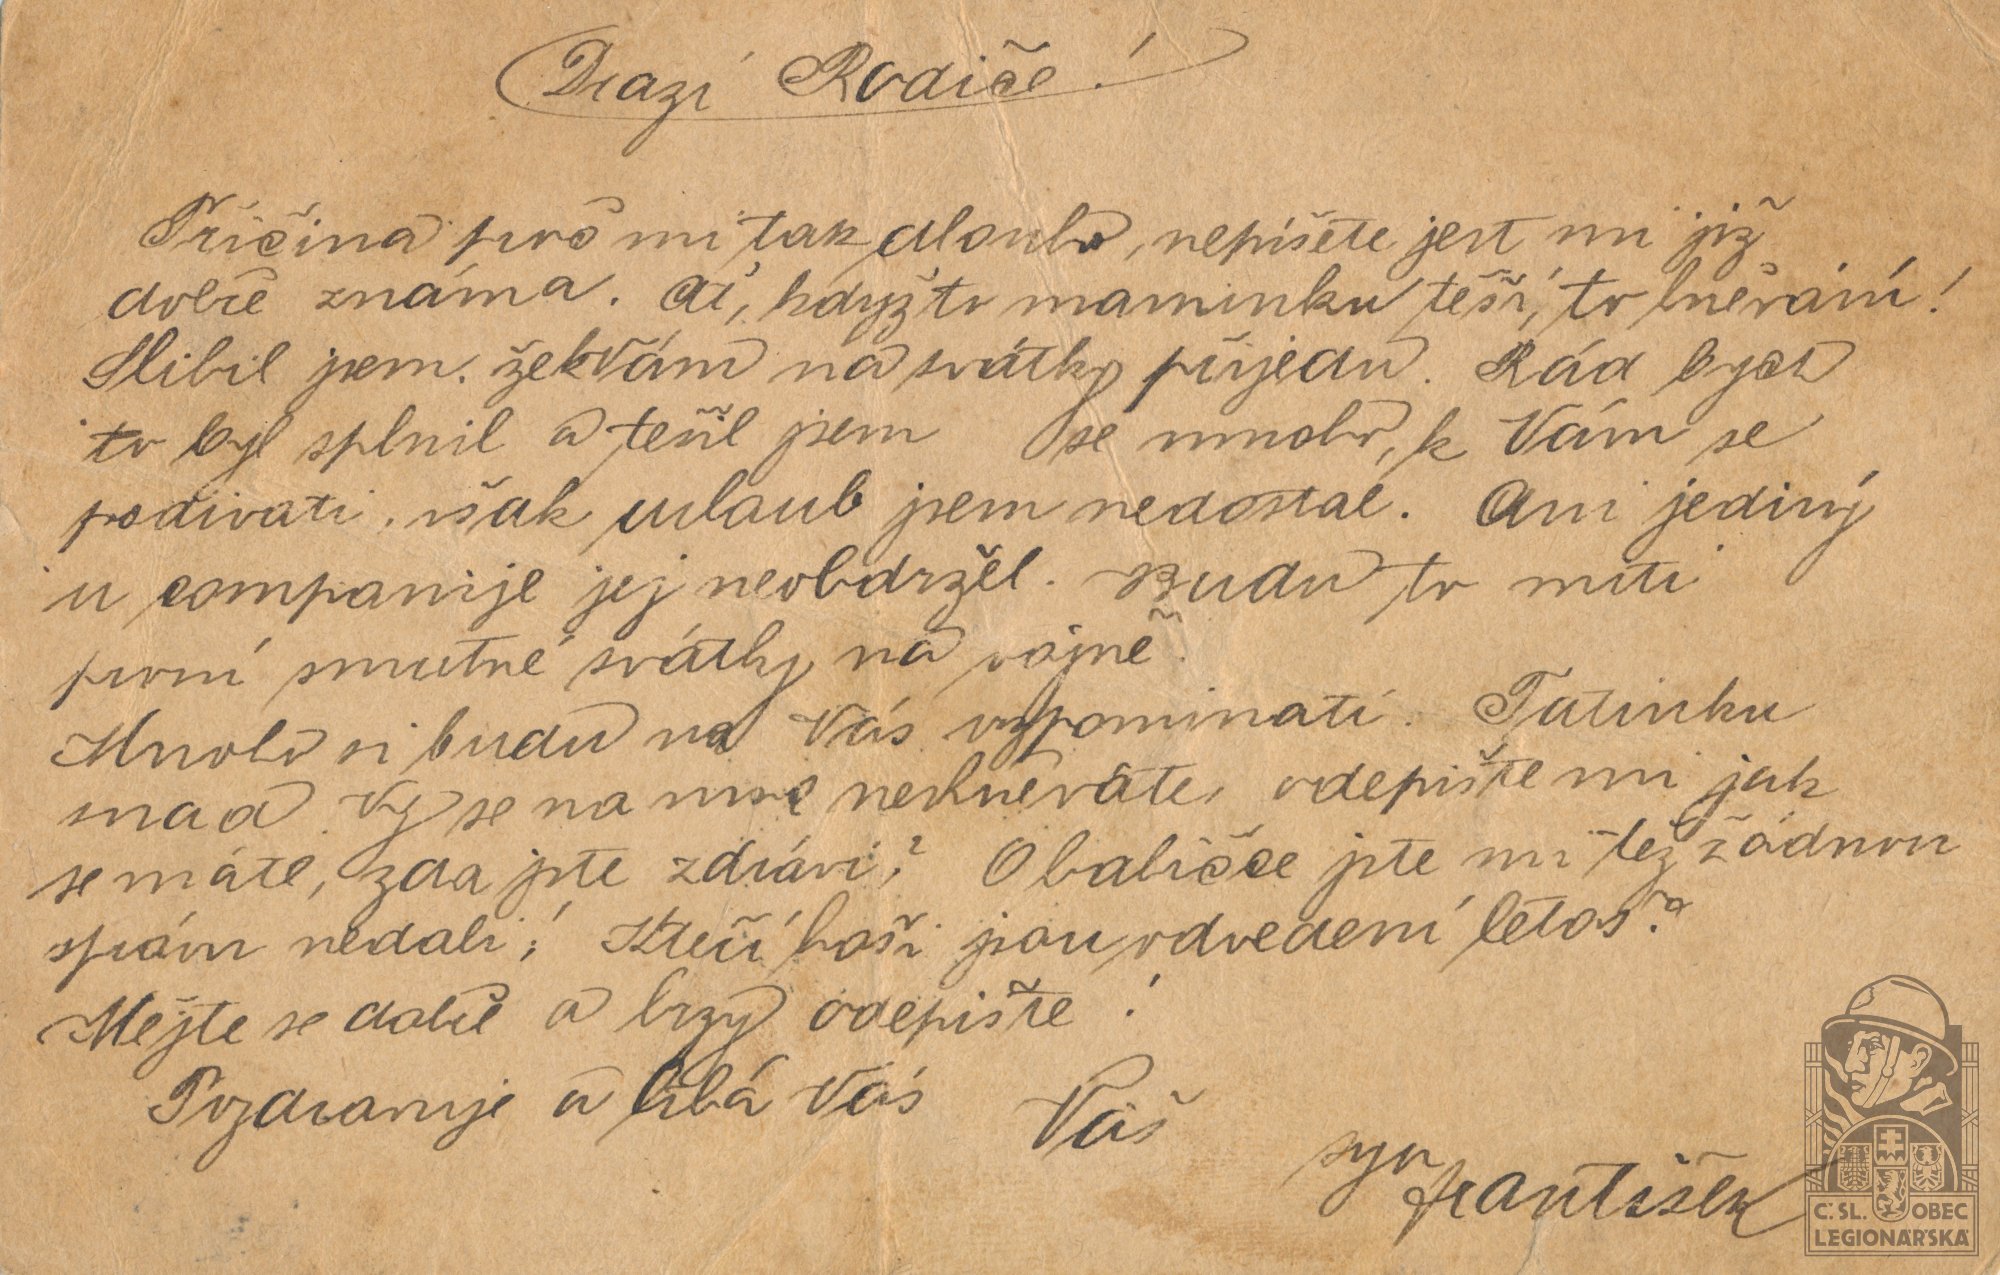 Drazí Rodiče!
Příčina proč mi tak dlouho, nepíšete jest mi již
dobře známa. Ať, když to maminku těší, to hněvání!
Slíbil jsem. že k Vám na svátky přijedu. Rád bych
to byl splnil a těšil jsem se mnoho, k Vám se
podívati. však urlaub jsem nedostal. Ani jediný
u companije jej neobdržel. Budu to míti
první smutné svátky na vojně.
Mnoho si budu na Vás vzpomínati. Tatínku
snad Vy se na mne nehněváte, odepište mi jak
se máte, zda jste zdrávi? O balíčce jste mi též žádnou
zprávu nedali! Kteří hoši jsou odvedení létos?
Mějte se dobře a brzy odepište!
Pozdravuje a líbá Vás Váš
syn
František
Č.SL. OBEC
LEGIONÁŘSKÁ